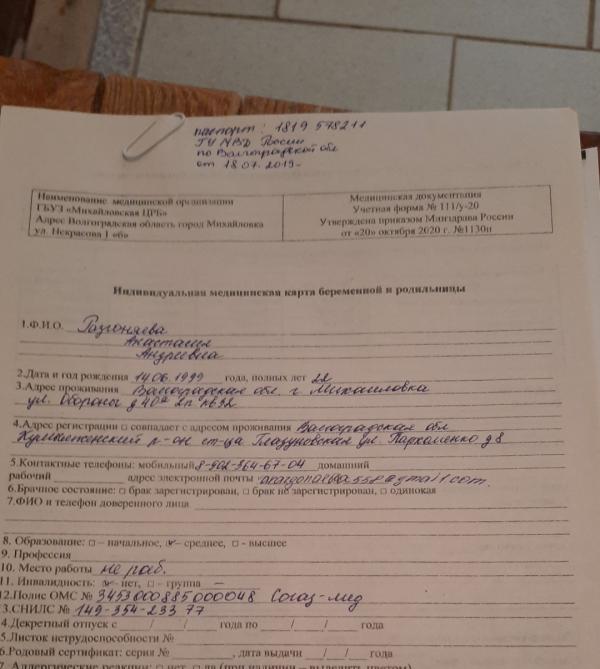 паспорт: 1819 578211
ГУ МВД России
по Волгоградской обл
от 18.07.2019
Наименование медицинской организации
ГБУЗ «Михайловская ЦРБ»
Адрес Волгоградская область город Михайловка
ул. Некрасова 1 «б»
Медицинская документация
Учетная форма № 111/у-20
Утверждена приказом Минздрава России
от «20» октября 2020 г. №1130н
Индивидуальная медицинская карта беременной и родильницы
1.Ф.И.О. Разгоняева
Анастасия
Андреевна
2.Дата и год рождения 14.06.1999 года, полных лет 22
3.Адрес проживания Волгоградская обл. г. Михайловка
ул. Обороны д 40а 2п кв32
4.Адрес регистрации □ совпадает с адресом проживания Волгоградская обл
Кумылженский р-он ст-ца Глазуновская ул. Пархоменко д 8
5.Контактные телефоны: мобильный 8-902-364-67-04 домашний
рабочий адрес электронной почты @gmail.com.
6.Брачное состояние: □ брак зарегистрирован, □ брак не зарегистрирован, □ одинокая
7.ФИО и телефон доверенного лица
8. Образование: □ – начальное, – среднее, □ - высшее
9. Профессия
10. Место работы не раб.
11. Инвалидность: - нет, □ - группа —
12.Полис ОМС № 3453000885000048 Согаз-мед
3.СНИЛС № 149-354-233 77
4.Декретный отпуск с / / года по / / года
5.Листок нетрудоспособности №
6.Родовый сертификат: серия № , дата выдачи / / года
7. Аллергические реакции: □ нет, □ да (при наличии – выделить цветом)